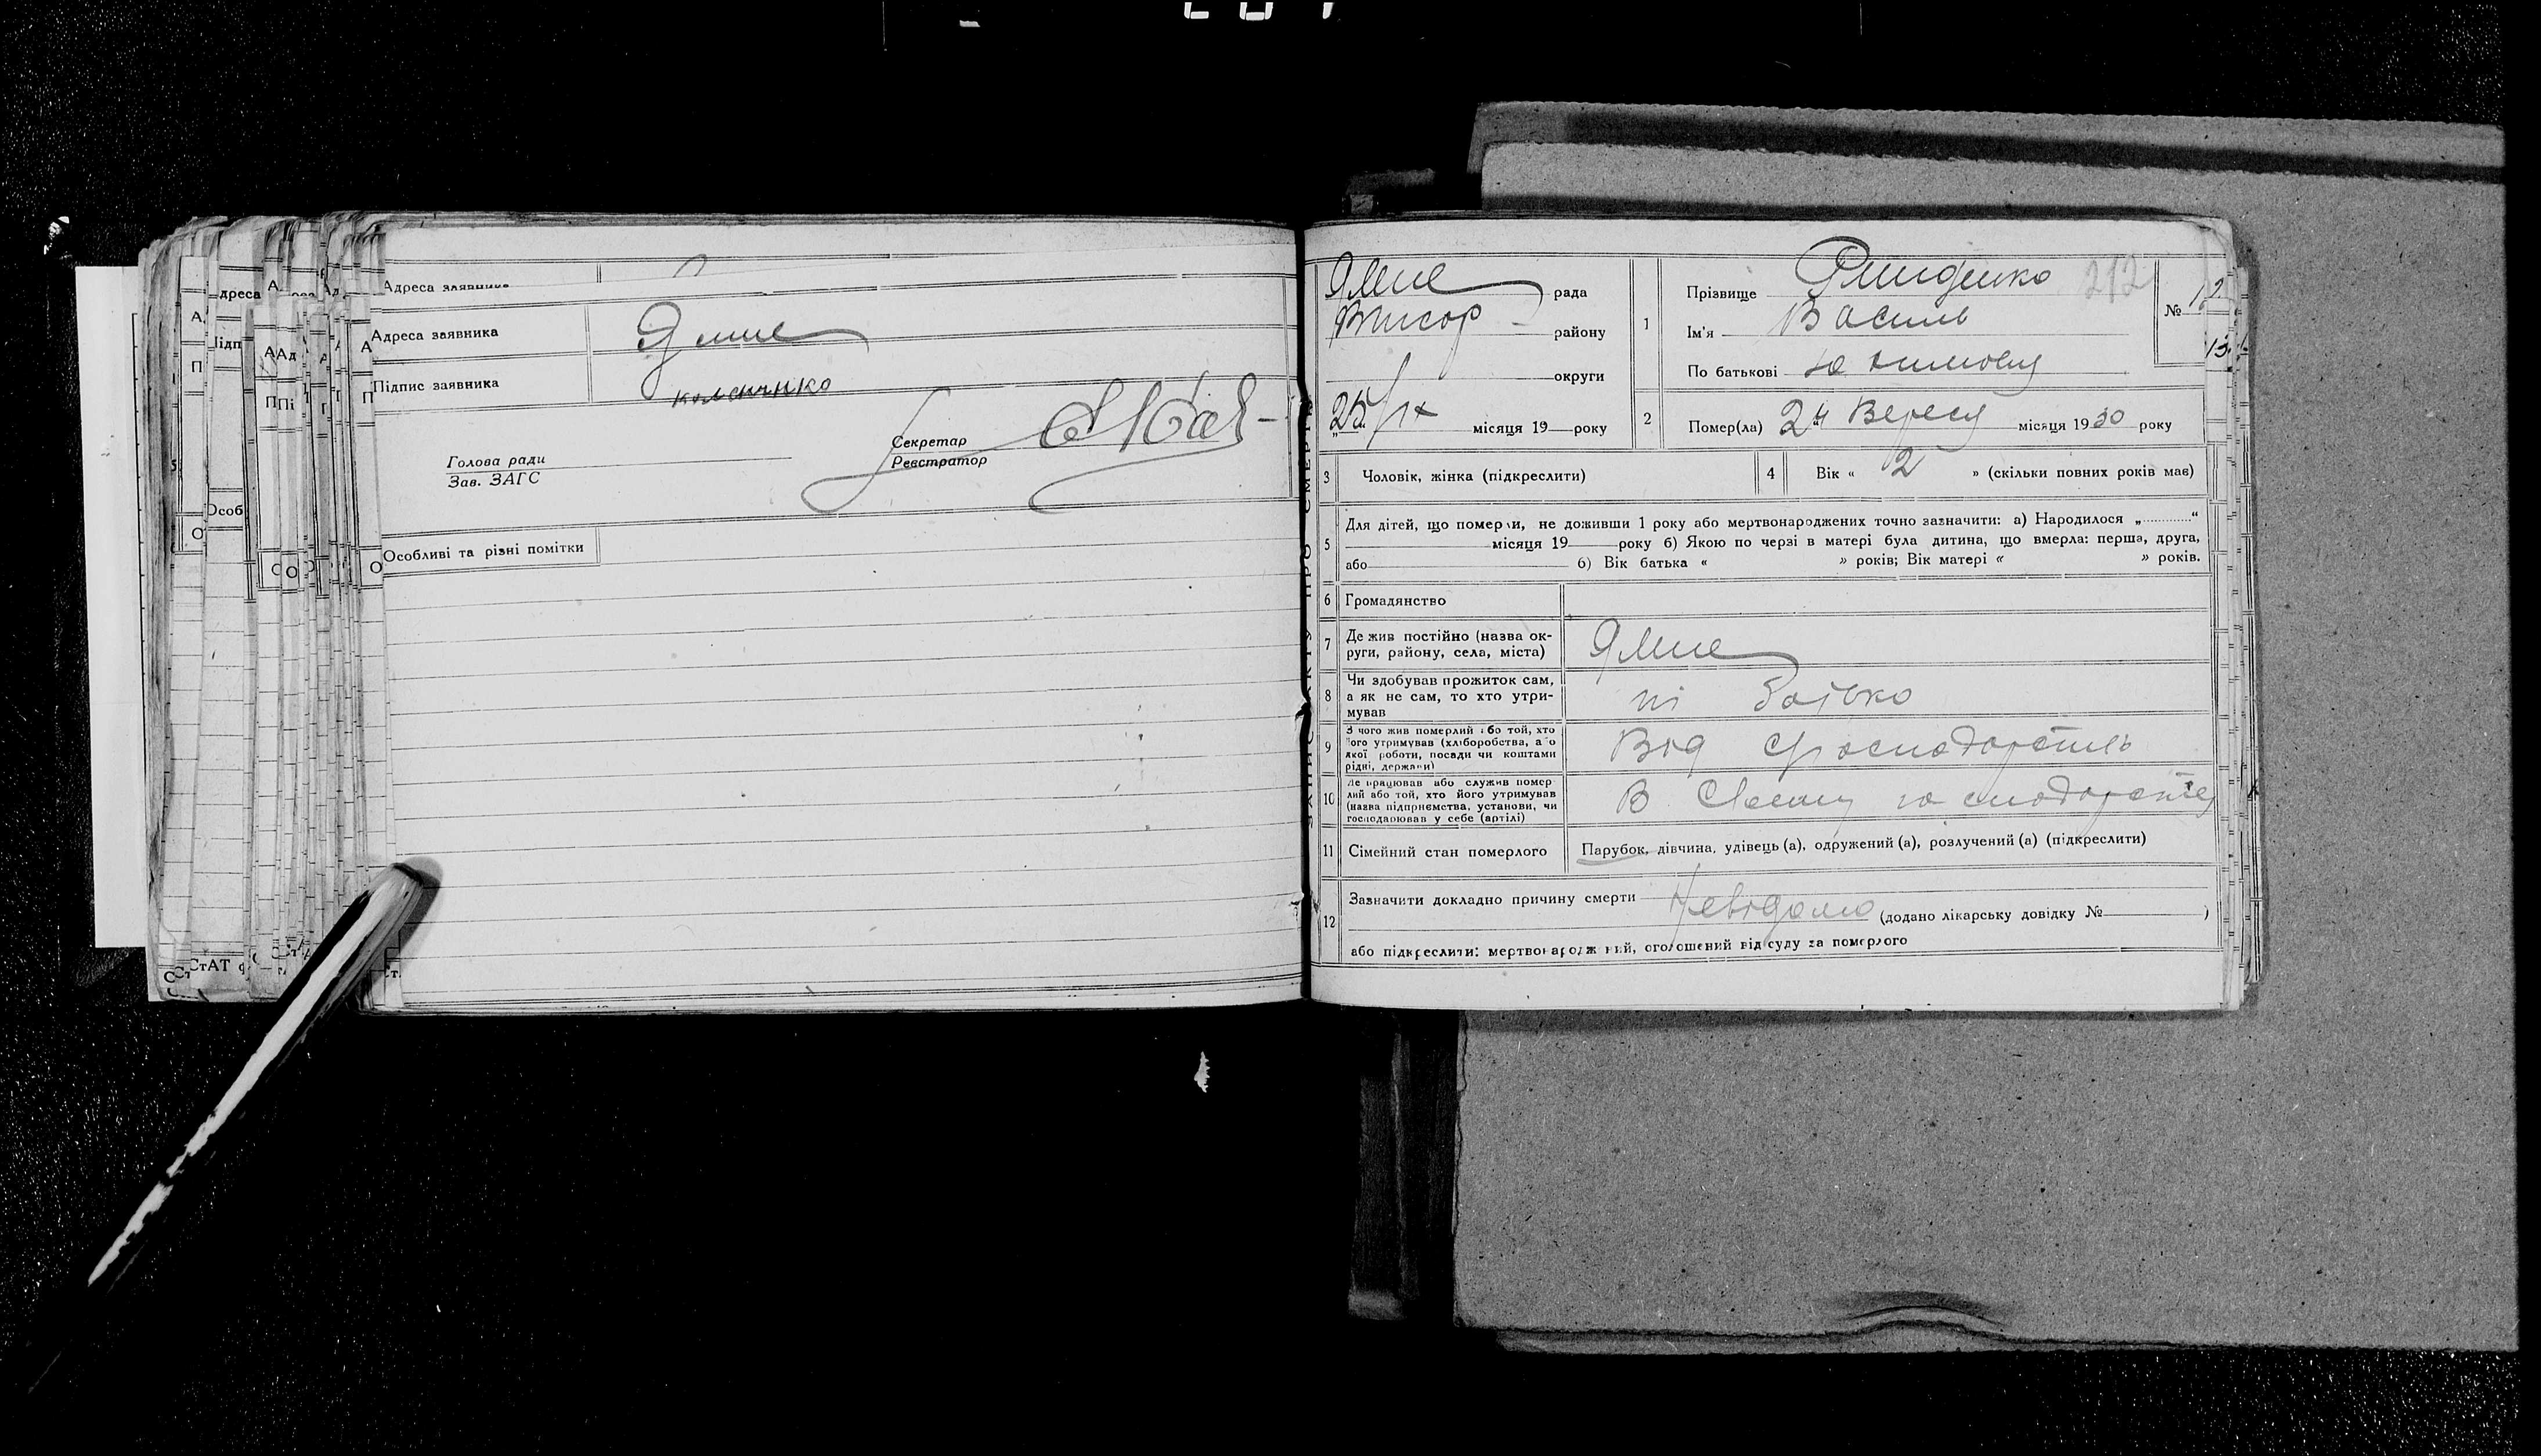 Адреса заявника
Адреса заявника Ямне
Підпис заявника
Голова ради
Зав. ЗАГС
Секретар
Реєстратор
Особливі та різні помітки
ЗАПИС АКТУ ПРО СМЕРТЬ
Ямне рада
району
округи
25/IX місяця 19 року
1
Прізвище
212
Ім'я Василь
По батькові
№ 12
2 Помер(ла) 24 Вересу місяця 1930 року
3 Чоловік, жінка (підкреслити)
4 Вік « 2 » (скільки повних років має)
5 Для дітей, що померли, не доживши 1 року або мертвонароджених точно зазначити: а) Народилося „ “
місяця 19 року б) Якою по черзі в матері була дитина, що вмерла: перша, друга,
або б) Вік батька « » років; Вік матері « » років.
6 Громадянство
7 Де жив постійно (назва ок-
руги, району, села, міста) Ямне
8 Чи здобував прожиток сам,
а як не сам, то хто утри-
мував
ні батько
9 З чого жив померлий або той, хто
його утримував (хліборобства, або
якої роботи, посади чи коштами
рідні, держави)
Від
10 Де працював або служив помер
лий або той, хто його утримував
(назва підприємства, установи, чи
господарював у себе (артілі)
В
11 Сімейний стан померлого Парубок, дівчина, удівець (а), одружений (а), розлучений (а) (підкреслити)
12 Зазначити докладно причину смерти Невідомо (додано лікарську довідку № )
або підкреслити: мертвонароджений, оголошений від суду за померлого